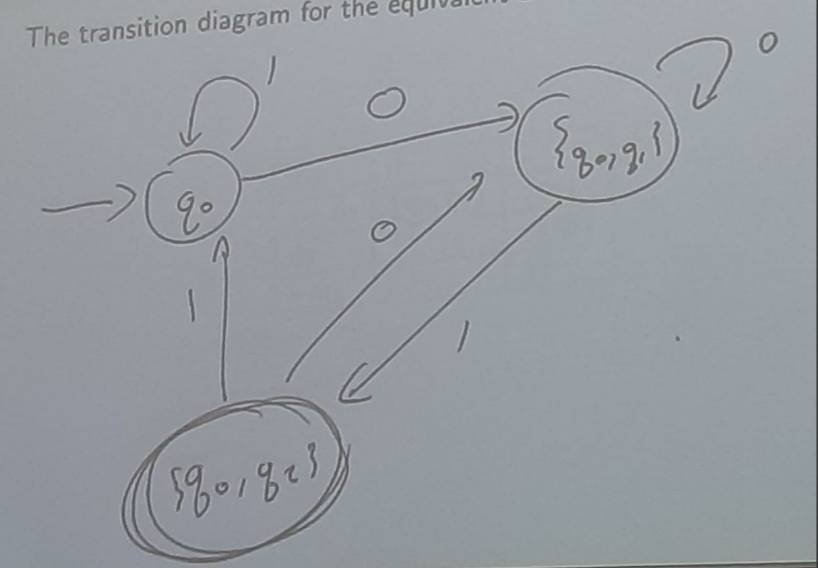 The transition diagram for the equivalent
1
0
0
{q0, q1}
q0
0
1
1
{q0, q2}